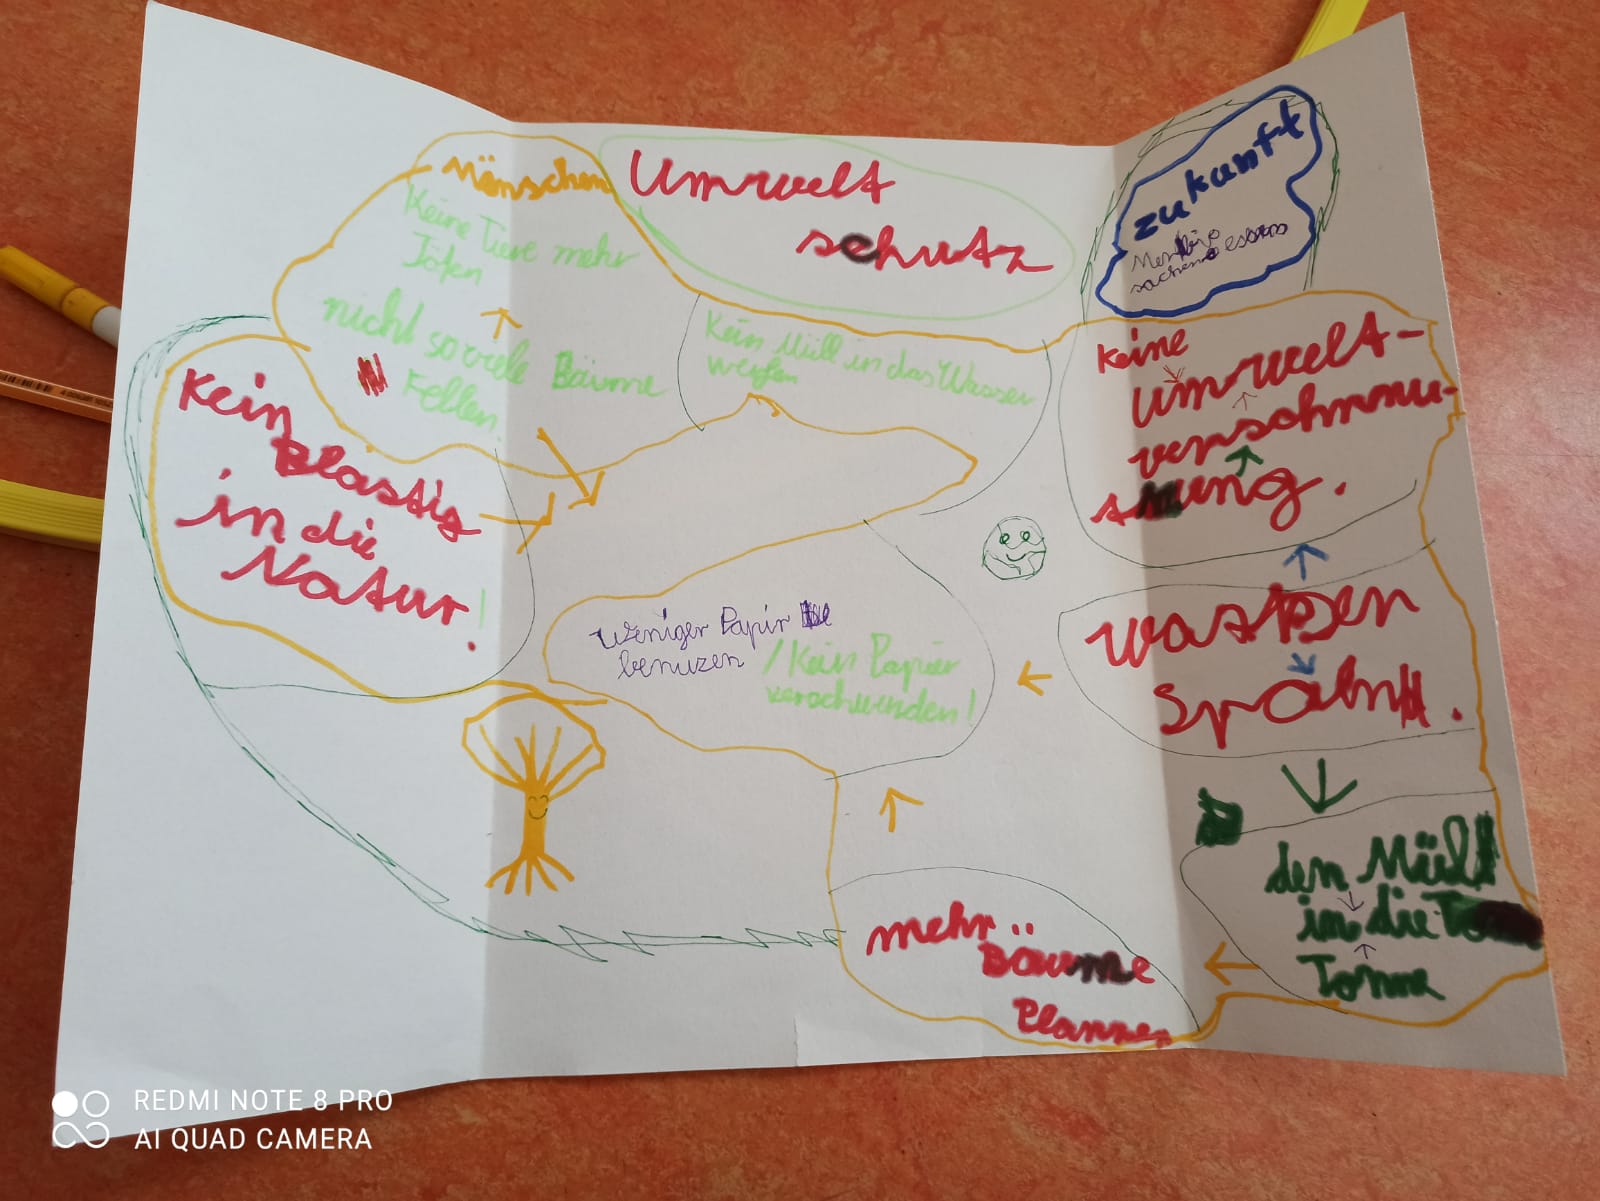 Mänschen
Keine Tiere mehr
Töten
nicht so viele Bäume
Fellen.
Umwelt
schutz
zukunft
Mer bio
sachen essens
Kein Müll in das Wasser
werfen
Keine
Umwelt-
verschmu-
tsung.
Kein
Blastig
in die
Natur!
weniger Papir
benuzen / Kein Papier
verschwenden!
wasser
Sparn.
dem Müll
in die To
Tonne
mehr
Bäume
Planzen
REDMI NOTE 8 PRO
AI QUAD CAMERA